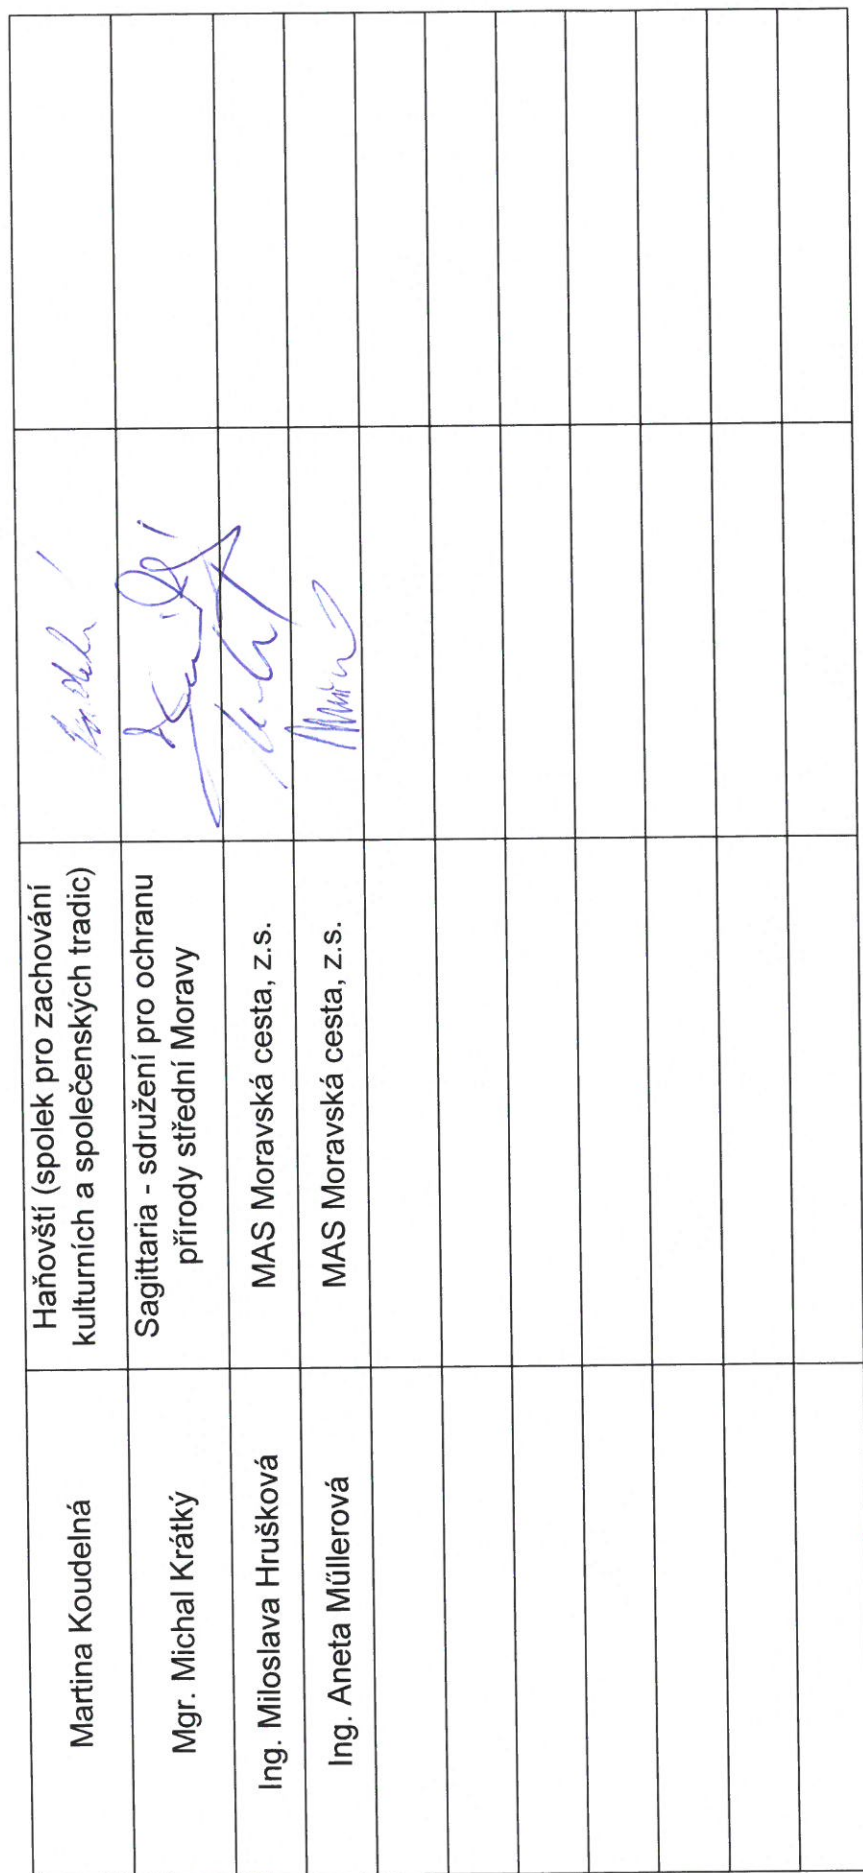 Martina Koudelná
Haňovští (spolek pro zachování
kulturních a společenských tradic)
Mgr. Michal Krátký
Sagittaria - sdružení pro ochranu
přírody střední Moravy
Ing. Miloslava Hrušková
MAS Moravská cesta, z.s.
Ing. Aneta Műllerová
MAS Moravská cesta, z.s.